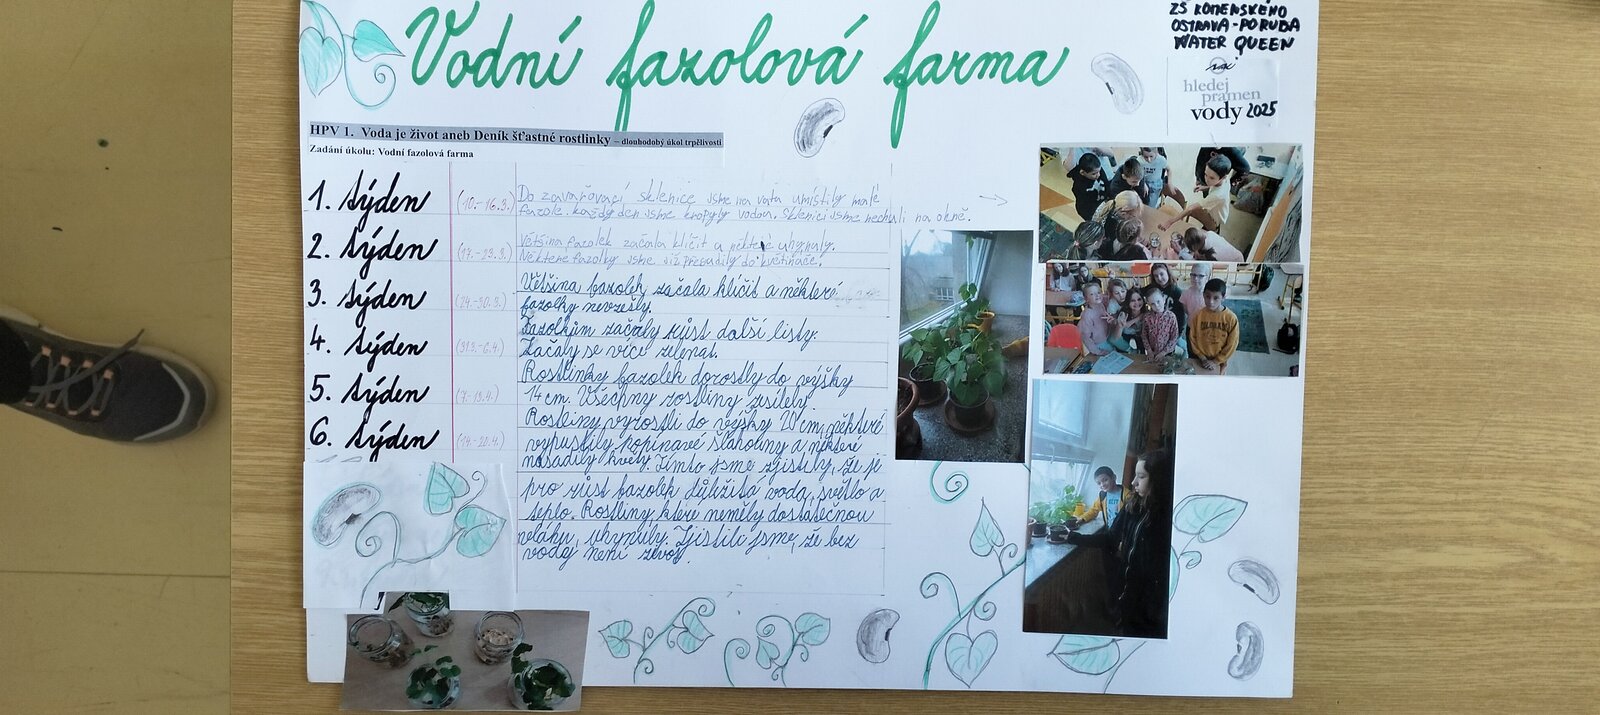 Vodní fazolová farma
ZŠ KOMENSKÉHO
OSTRAVA-PORUBA
WATER QUEEN
hledej
pramen
vody 2025
HPV 1. Voda je život aneb Deník šťastné rostlinky – dlouhodobý úkol trpělivosti
Zadání úkolu: Vodní fazolová farma
1. týden (10.-16.3.) Do zavařovací sklenice jsme na vatu umístily malé
fazole. každý den jsme kropyly vodou. Sklenici jsme nechali na okně.
2. týden (17.-23.3.) Většina fazolek začala klíčit a některé uhynuly.
Některé fazolky jsme již přesadily do květináče.
3. týden (24.-30.3.) Většina fazolek začala klíčit a některé
fazolky nevzešly.
4. týden (31.3.-6.4.) Fazolkům začaly růst další listy.
Začaly se více zelenat.
5. týden (7.-13.4.) Rostlinky fazolek dorostly do výšky
14 cm. Všechny rostliny zesílely.
6. týden (14.-20.4.) Rostliny vyrostli do výšky 20 cm, některé
vypustily popínavé šlahouny a některé
nasadily květy. Tímto jsme zjistily, že je
pro růst fazolek důležitá voda, světlo a
teplo. Rostliny, které neměly dostatečnou
vláhu, uhynuly. Zjistili jsme, že bez
vody není život.